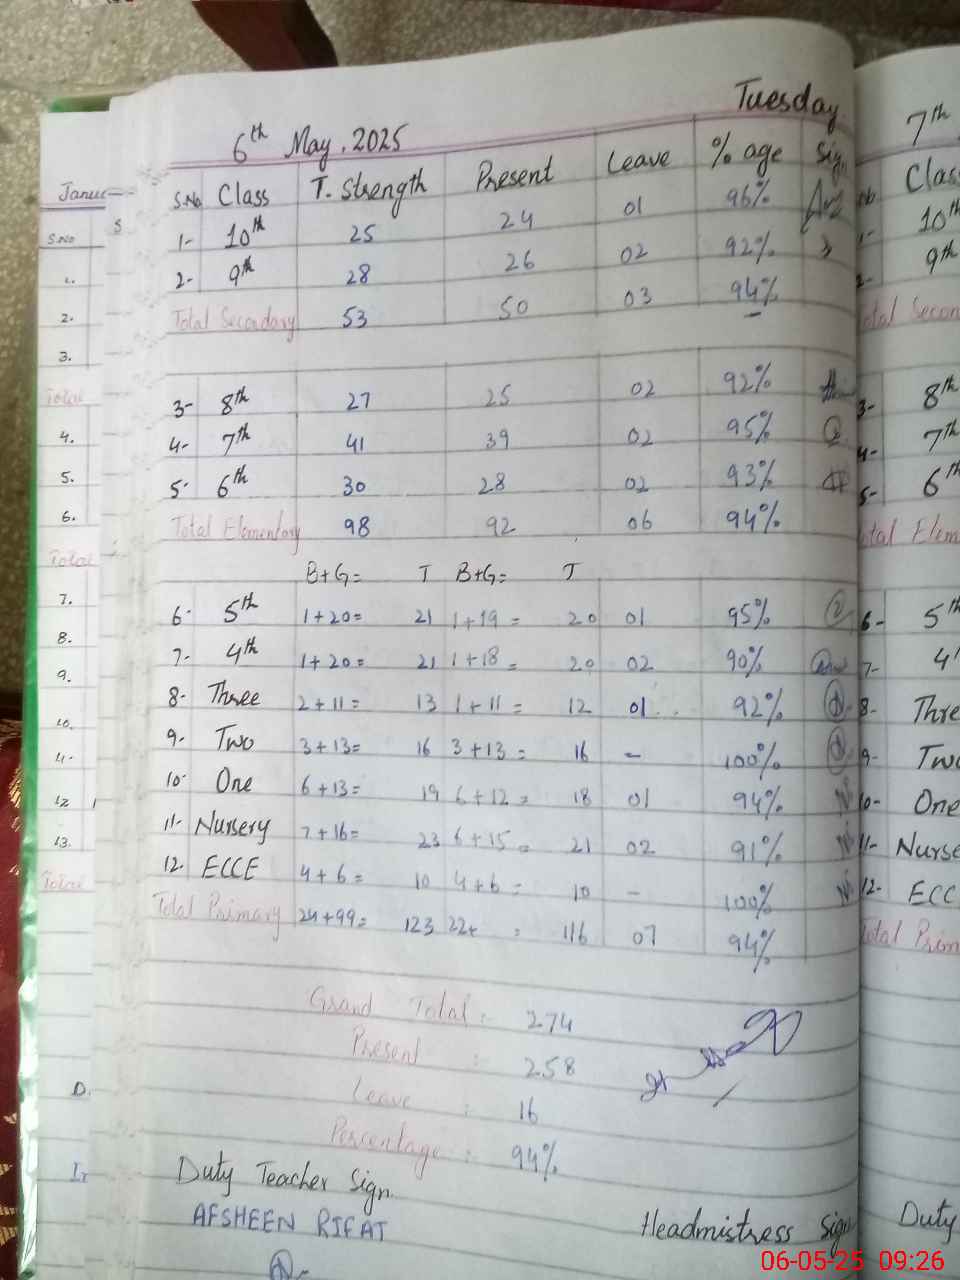 Tuesday
6th May, 2025
S.No Class T. Strength Present Leave % age Sign
1- 10th 25 24 01 96%
2- 9th 28 26 02 92%
Total Secondary 53 50 03 94%
3- 8th 27 25 02 92%
4- 7th 41 39 02 95%
5- 6th 30 28 02 93%
Total Elementary 98 92 06 94%
B+G= T B+G= T
6- 5th 1+20= 21 1+19= 20 01 95%
7- 4th 1+20= 21 1+18= 20 02 90%
8- Three 2+11= 13 1+11= 12 01 92%
9- Two 3+13= 16 3+13= 16 - 100%
10- One 6+13= 19 6+12= 18 01 94%
11- Nursery 7+16= 23 6+15= 21 02 91%
12- ECCE 4+6= 10 4+6= 10 - 100%
Total Primary 24+99= 123 22+ = 116 07 94%
Grand Total:- 274
Present : 258
Leave : 16
Percentage :- 94%
Duty Teacher Sign.
AFSHEEN RIFAT
Headmistress Sign
S.No
1.
2.
3.
Total
4.
5.
6.
Total
7.
8.
9.
10.
12
13.
Total
D.
7th
Clas
1- 10th
2- 9th
3- 8th
4- 7th
5- 6th
6- 5th
7- 4
8- Thre
9- Two
10- One
11- Nurse
12- ECC
Duty
06-05-25 09:26